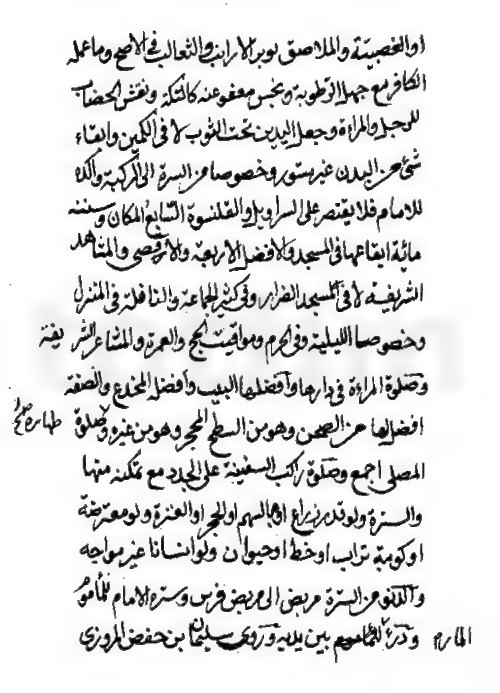 او الغصبيّة والملاصق لوبر الارانب والثعالب في الاصح وما عمله
الكافر مع جهل الرطوبة ونجس معفو عنه كالتكة ونقش الخضاب
للرجل والمراة وجعل اليدين تحت الثوب لا في الكمين وابقاء
شئ من البدن غير مستور وخصوصا من السرة الى الركبة واكده
للامام فلا يقتصر على السراويل والقلنسوة السّابع المكان وسننه
مائة ايقاعها في المسجد والافضل الاربعة والاقصى والمشاهد
الشريفة لا في المسجد الضرار وفي كثير الجماعة والنافلة في المنزل
وخصوصا الليلية وفي الحرم ومواقيت الحج والعمرة والمشاعر الشريفة
وصلوة المراة في دارها وافضلها البيت وافضله المخدع والصفة
افضلها من الصحن وهو من السطح المحجر وهو من غيره وصلوة
طهارة
المصلى اجمع وصلوة راكب السفينة على الجدد مع تمكنه منها
والسترة ولو قدر ذراع او بالسهم او الحجر او العنزة ولو معترضة
او كومة تراب او خط او حيوان ولو انسانا غير مواجه
والدنو من السترة مربض الى مربض فرس وسترة الامام للماموم
ودرء المار بين يديه وروى سليمان بن حفص المروزي